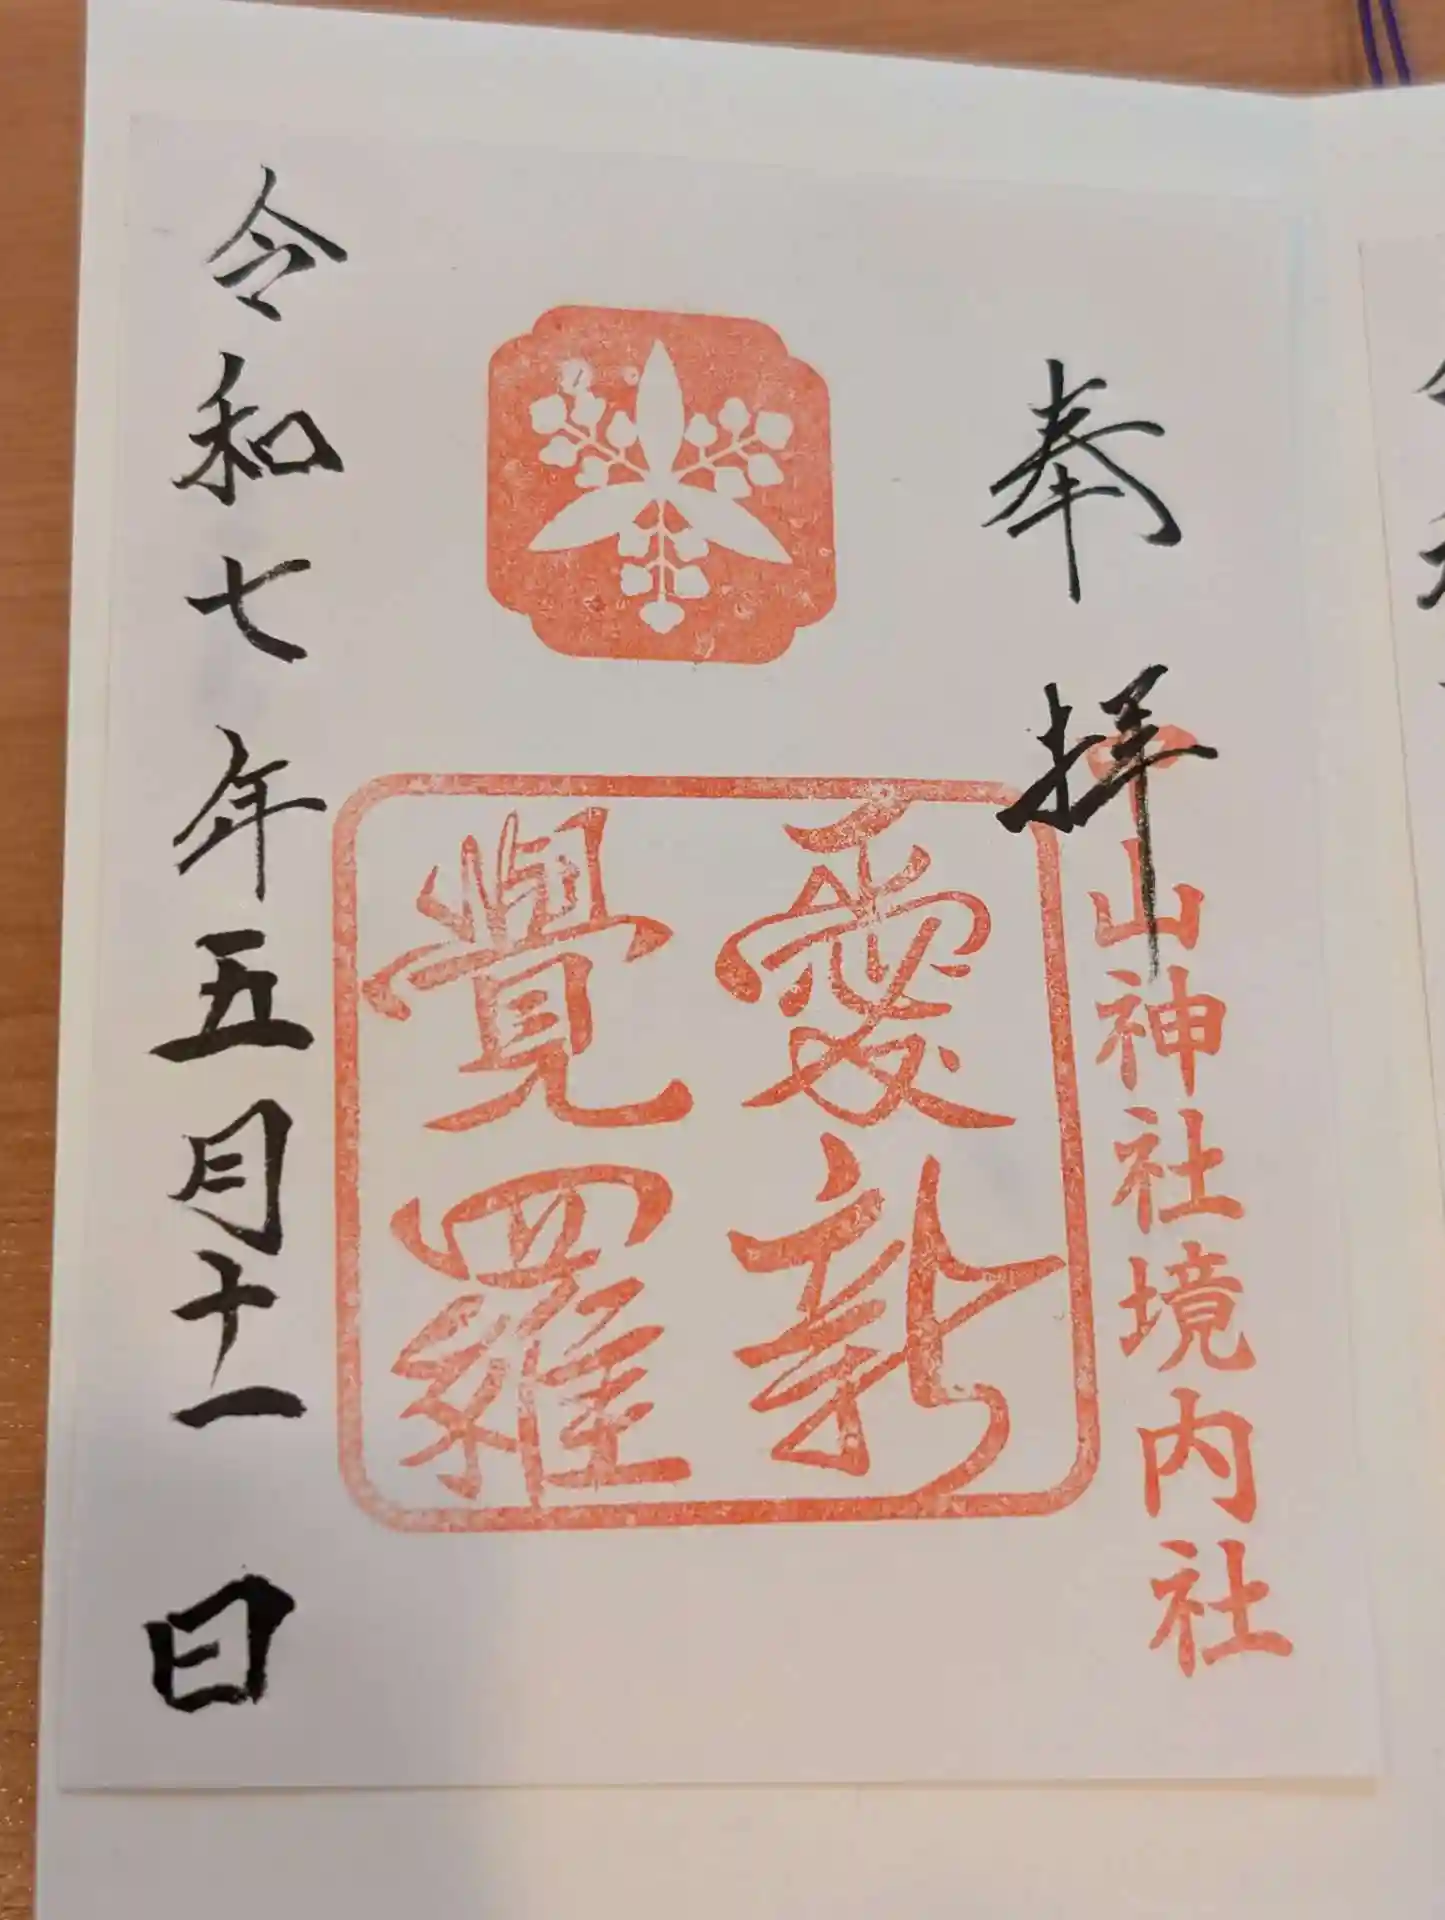 奉拝
中山神社境内社
愛新
覺羅
令和七年五月十一日